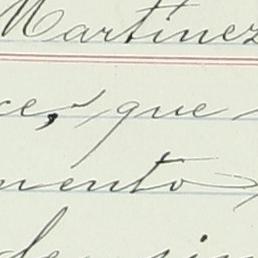 Martinez
ce, que
mento